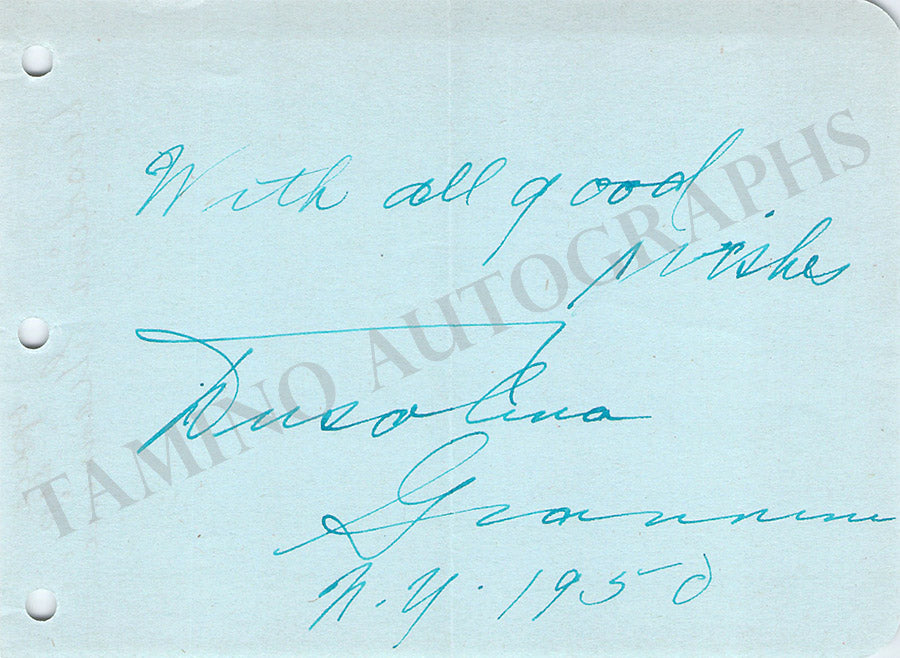 With all good
wishes
Dusolina
Giannini
N.Y. 1950
TAMINO AUTOGRAPHS